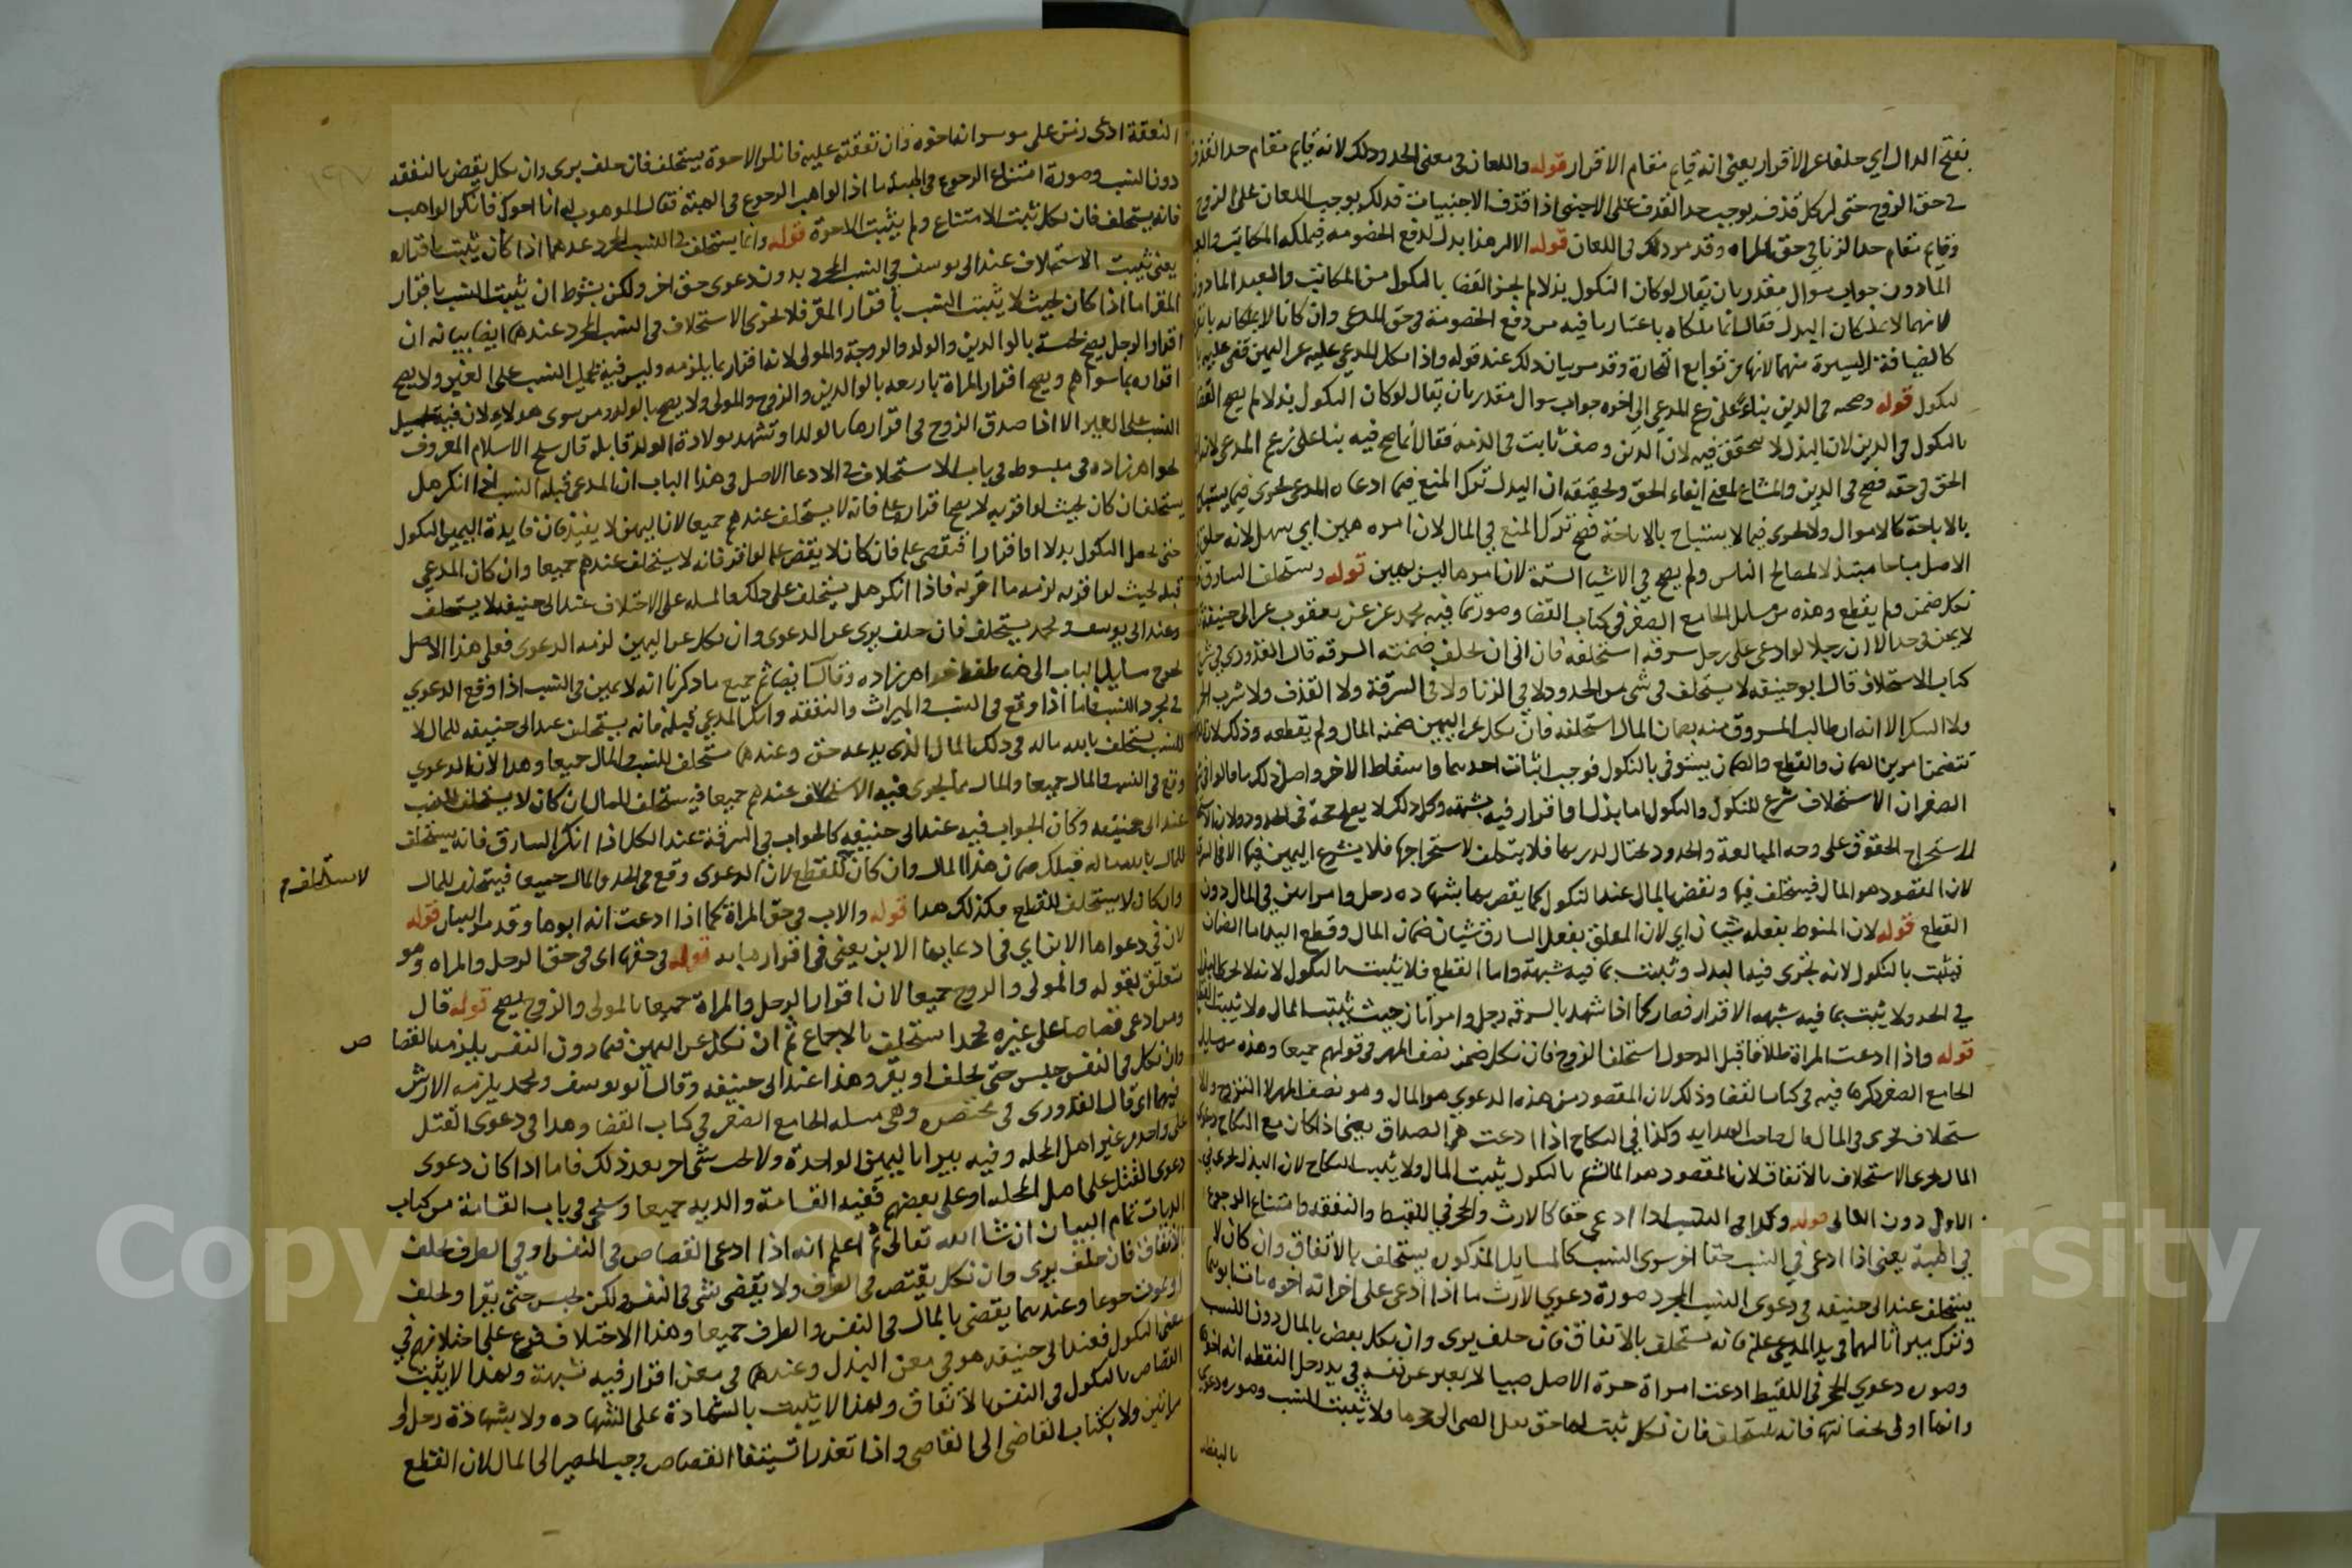 بفتح الدال اي خلفا عن الاقرار يعني انه قايم مقام الاقرار قوله واللعان في معنى الحد وذلك لانه قايم مقام حد القذف
في حق الزوج حتى ان كل قذف يوجب حد القذف على الاجنبي اذا قذف الاجنبيات فذلك يوجب اللعان على الزوج
وقايم مقام حد الزنا في حق المراه وقد مر ذلك في اللعان قوله الا ان هذا بدل لدفع الخصومه فيملكه المكاتب والعبد
الماذون جواب سوال مقدر بان يقال لو كان النكول بذلا لم يجز القضا بالنكول من المكاتب والعبد الماذون
لانهما لا يملكان البدل فقال انما يملكاه باعتبار ما فيه من دفع الخصومة في حق المدعي وان كانا لا يملكانه
كالضيافة اليسيرة منهما لانها من توابع التجارة وقد مر بيان ذلك عند قوله واذا نكل المدعي عليه عن اليمين قضي عليه
لنكول قوله وصحته في الدين بناء على زعم المدعي الى اخره جواب سوال مقدر بان يقال لو كان النكول بذلا لم يصح القضا
بالنكول في الدين لان البذل لا يتحقق فيه لان الدين وصف ثابت في الذمه فقال انما صح فيه بناء على زعم المدعي لانه
الحق في حقه فصح في الدين والمشاع لمعنى ايفاء الحق وتحقيقه ان البدل ترك المنع فيما ادعاه المدعي يجري فيما يستباح
بالاباحة كالاموال ولا يجري فيما لا يستباح بالاباحة فصح ترك المنع في المال لان امره هين اي سهل لانه خلق
الاصل مباحا مبتذلا لمصالح الناس ولم يصح في الاشيا الستة لان امرها ليس بهين قوله ويستحلف السارق
نكل ضمن ولم يقطع وهذه من مسايل الجامع الصغير في كتاب القضا وصورتها فيه محمد عن يعقوب عن ابي حنيفة
لا يمين في حد الا ان رجلا لو ادعى على رجل سرقه استحلفه فان ابى ان يحلف ضمنته السرقه قال القدوري في شرح
كتاب الاستحلاف قال ابو حنيفه لا يستحلف في شي من الحدود لا في الزنا ولا في السرقة ولا القذف ولا شرب الخمر
ولا السكر الا انه ان طالب المسروق منه بضمان المال استحلفه فان نكل عن اليمين ضمنه المال ولم يقطعه وذلك لان
تتضمن امرين الضمان والقطع والضمان يستوفى بالنكول فوجب اثبات احدهما واسقاط الاخر واصل ذلك ما قالوا في
الصغير ان الاستحلاف شرع للنكول والنكول اما بذل او اقرار فيه شبهه وكل ذلك لا يصلح حجة في الحدود ولان
لاستخراج الحقوق على وجه المبالغة والحدود يحتال لدريها فلا يتكلف لاستخراجها فلا يشرع اليمين فيها الا في السرقة
لان المقصود هو المال فيستحلف فيها ويقضى بالمال عند النكول كما يقضى بها بشهاده رجل وامراتين في المال دون
القطع قوله لان المنوط بفعله شيان اي لان المعلق بفعل السارق شيان ضمان المال وقطع اليد اما الضمان
فيثبت بالنكول لانه يجري فيه البدل ويثبت بما فيه شبهة واما القطع فلا يثبت بالنكول لانه لا يجري
في الحد ولا يثبت بما فيه شبهه الاقرار فصار كما اذا شهد بالسرقه رجل وامراتان حيث يثبت المال ولا يثبت القطع
قوله واذا ادعت المراة طلاقا قبل الدخول استحلف الزوج فان نكل ضمن نصف المهر في قولهم جميعا وهذه من مسايل
الجامع الصغير ذكرها فيه في كتاب القضا وذلك لان المقصود من هذه الدعوي هو المال وهو نصف المهر لا التزوج
ستحلاف يجري في المال قال صاحب الهدايه وكذا في النكاح اذا ادعت هي الصداق يعني اذا كان مع النكاح دعوى
المال يجري الاستحلاف بالاتفاق لان المقصود هو المال ثم بالنكول يثبت المال ولا يثبت النكاح لان البذل يجري في
الاول دون الثاني قوله وكذا في النسب اذا ادعى حقا كالارث والحجر في اللقيط والنفقه وامتناع الرجوع
في الهبة يعني اذا ادعى في النسب حقا اخر سوى النسب كالمسايل المذكوره يستحلف بالاتفاق وان كان لا
يستحلف عند ابي حنيفه في دعوى النسب المجرد صورة دعوي الارث ما اذا ادعى على اخر انه اخوه مات ابوهما
وترك ميراثا لهما في يد المدعي عليه فانه يستحلف بالاتفاق فان حلف يرى وان نكل يقضى بالمال دون النسب
وصوره دعوي الحجر في اللقيط ادعت امراة حرة الاصل صبيا لا يعبر عن نفسه في يد رجل التقطه انه اخوها
وانها اولى بحضانته فانه يستحلف فان نكل ثبت لها حق نقل الصبي الى حجرها ولا يثبت النسب وصوره دعوى
بالنفقه
النفقة ادعى زمن على موسر انه اخوه وان نفقته عليه فانكر الاخوة يستحلف فان حلف برى وان نكل يقضى بالنفقه
دون النسب وصورة امتناع الرجوع في الهبة ما اذا الواهب الرجوع في الهبة فقال الموهوب له انا اخوك فانكر الواهب
فانه يستحلف فان نكل ثبت الامتناع ولم يثبت الاخوة قوله وانما يستحلف في النسب المجرد عندهما اذا كان يثبت باقراره
يعني يثبت الاستحلاف عند ابي يوسف في النسب المجرد بدون دعوى حق اخر ولكن بشرط ان يثبت النسب باقرار
المقر اما اذا كان بحيث لا يثبت النسب باقرار المقر فلا يجري الاستحلاف في النسب المجرد عندهما ايضا بيانه ان
اقرار الرجل يصح بخمسة بالوالدين والولد والزوجة والمولى لانه اقرار بما يلزمه وليس فيه تحميل النسب على الغير ولا يصح
اقراره بما سواهم ويصح اقرار المراة باربعه بالوالدين والزوج والمولى ولا يصح بالولد ومن سوى هولاء لان فيه تحميل
النسب على الغير الا اذا صدق الزوج في اقرارها بالولد او تشهد بولادة الولد قابله قال شيخ الاسلام المعروف
بخواهرزاده في مبسوطه في باب الاستحلاف في الادعا الاصل في هذا الباب ان المدعي قبله النسب اذا انكر هل
يستحلف ان كان بحيث لو اقر به لا يصح اقراره عليه فانه لا يستحلف عندهم جميعا لان اليمين لا يفيد فان فايدة اليمين النكول
حتى يجعل النكول بدلا او اقرارا فيقضى عليه فان كان لا يقضى عليه لو اقر فانه لا يستحلف عندهم جميعا وان كان المدعي
قبله بحيث لو اقر به لزمه ما اقر به فاذا انكر هل يستحلف على ذلك فالمسله على الاختلاف عند ابي حنيفه لا يستحلف
وعند ابي يوسف ومحمد يستحلف فان حلف برى عن الدعوى وان نكل عن اليمين لزمه الدعوى فعلى هذا الاصل
يخرج مسايل الباب الى هنا لفظ خواهرزاده وقال ايضا ثم جميع ما ذكرنا انه لا يمين في النسب اذا وقع الدعوي
في مجرد النسب فاما اذا وقع في النسب والميراث والنفقه وانكر المدعي قبله فانه يستحلف عند ابي حنيفه للمال لا
للنسب يستحلف بالله ماله في ذلك المال الذي يدعيه حق وعندهما يستحلف للنسب والمال جميعا وهذا لان الدعوي
وقع في النسب والمال جميعا والمال مما يجري فيه الاستحلاف عندهم جميعا فيستحلف للمال ان كان لا يستحلف للنسب
عند ابي حنيفه وكان الجواب فيه عند ابي حنيفه كالجواب في السرقة عند الكل اذا انكر السارق فانه يستحلف
للمال بالله ماله قبلك ضمان هذا المال وان كان للقطع لان الدعوى وقع في الحد والمال جميعا فيستحلف للمال
لا يستحلف م
وان كان لا يستحلف للقطع فكذلك هذا قوله والاب في حق المراة كما اذا ادعت انه ابوها وقد مر البيان قوله
لان في دعواها الابن اي في ادعايها الابن يعني في اقرارها به قوله في حقهما اي في حق الرجل والمراه وهو
تعلق بقوله والمولى والزوج جميعا لان اقرار الرجل والمراة جميعا بالمولى والزوج يصح قوله قال
ومن ادعى قصاصا على غيره فجحد استحلف بالاجماع ثم ان نكل عن اليمين فيما دون النفس يلزمه القضا
ص
وان نكل في النفس حبس حتى يحلف او يقر وهذا عند ابي حنيفه وقال ابو يوسف ومحمد يلزمه الارش
فيهما اي قال القدوري في مختصره وهي مسله الجامع الصغير في كتاب القضا وهذا في دعوى القتل
على واحد من غير اهل المحله وفيه يبرا باليمين الواحدة ولا يجب شي اخر بعد ذلك فاما اذا كان دعوى
دعوى القتل على اهل المحله او على بعضهم ففيه القسامة والديه جميعا وسيجي في باب القسامة من كتاب
الديات تمام البيان ان شا الله تعالى ثم اعلم انه اذا ادعى القصاص في النفس او في الطرف يحلف
بالاتفاق فان حلف برى وان نكل يقتص في الطرف ولا يقضى بشي في النفس ولكن يحبس حتى يقر او يحلف
او يموت جوعا وعندهما يقضى بالمال في النفس والطرف جميعا وهذا الاختلاف فرع على اختلافهم في
معنى النكول فعند ابي حنيفه هو في معنى البذل وعندهما في معنى اقرار فيه شبهة ولهذا لا يثبت
القصاص بالنكول في النفس بالاتفاق ولهذا لا يثبت بالشهادة على الشهاده ولا بشهادة رجل او
مراتين ولا بكتاب القاضي الى القاضي واذا تعذر استيفا القصاص وجب المصير الى المال لان القطع